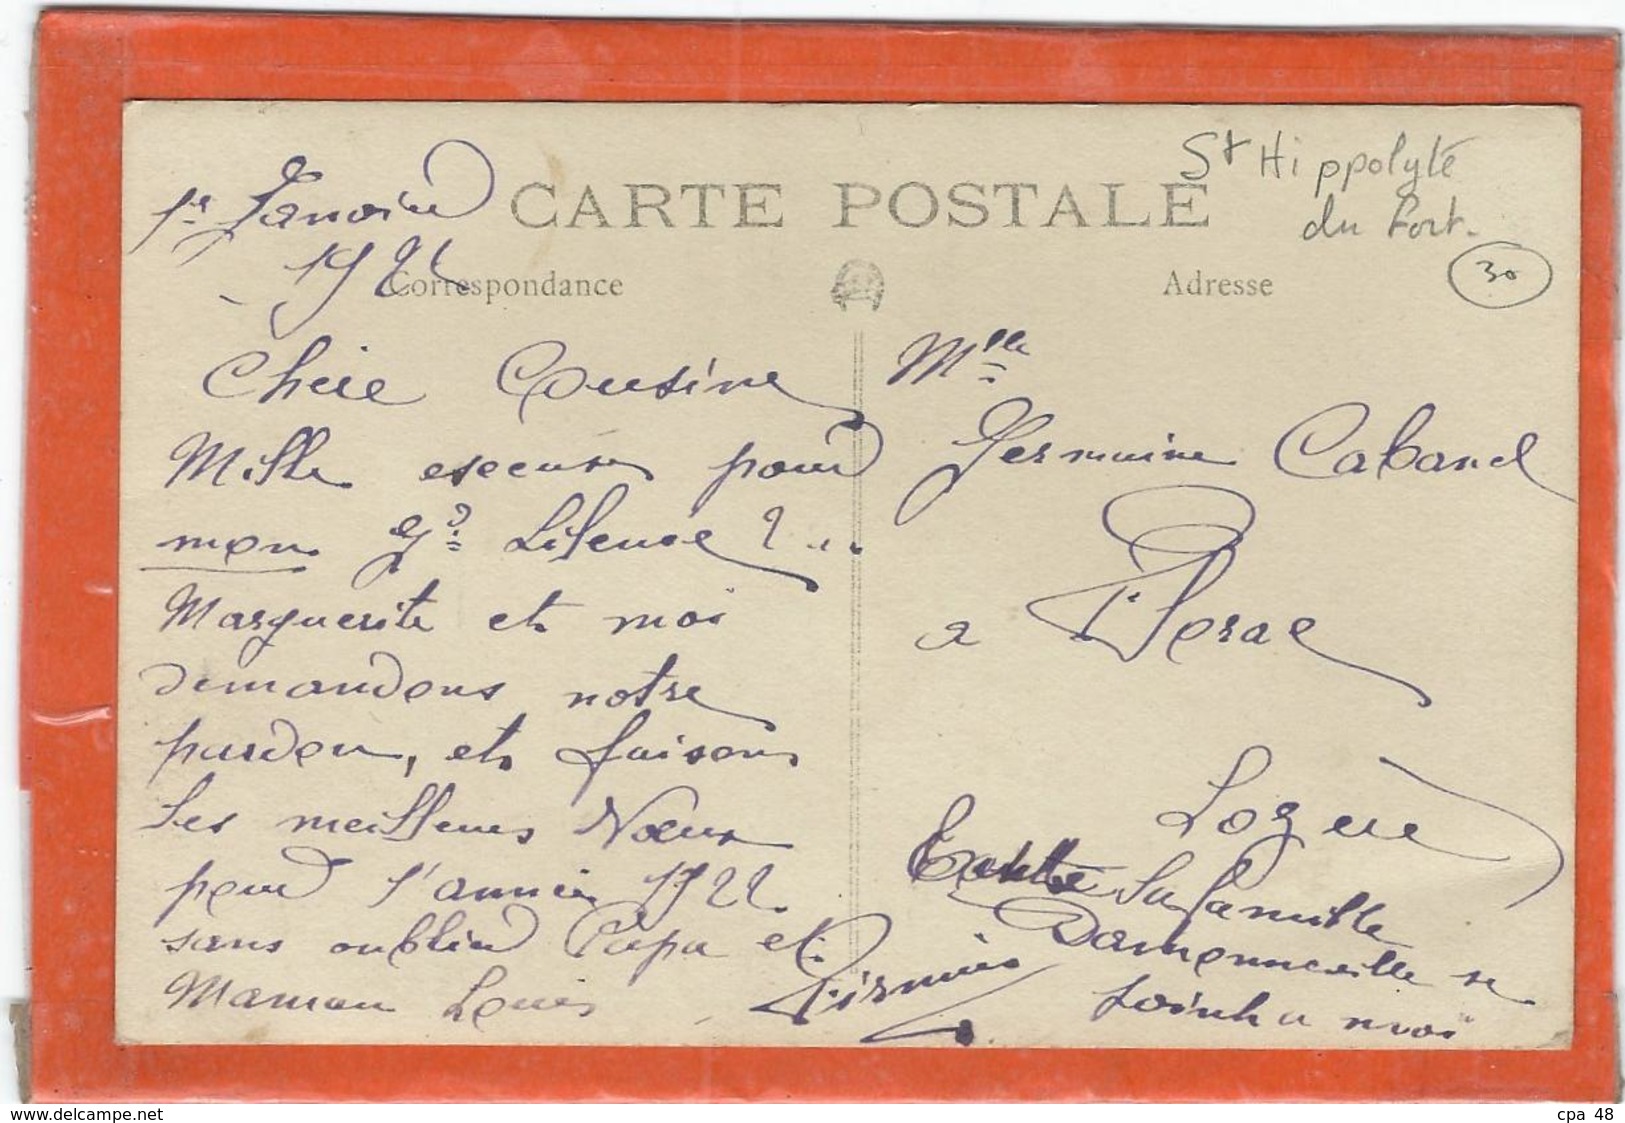 St Hippolyte
du Fort.
30
CARTE POSTALE
Correspondance
Adresse
1er Janvier
1922
Chère Cousine
Mille excuses pour
mon gd Silence ! ...
Marguerite et moi
demandons notre
pardon, et faisons
les meilleurs Vœux
pour l'année 1922.
sans oublier Papa et
Maman Louis
Mlle
Germaine Cabanel
a Florac
Lozère
Toute la famille
se
joint a moi
cpa 48
www.delcampe.net